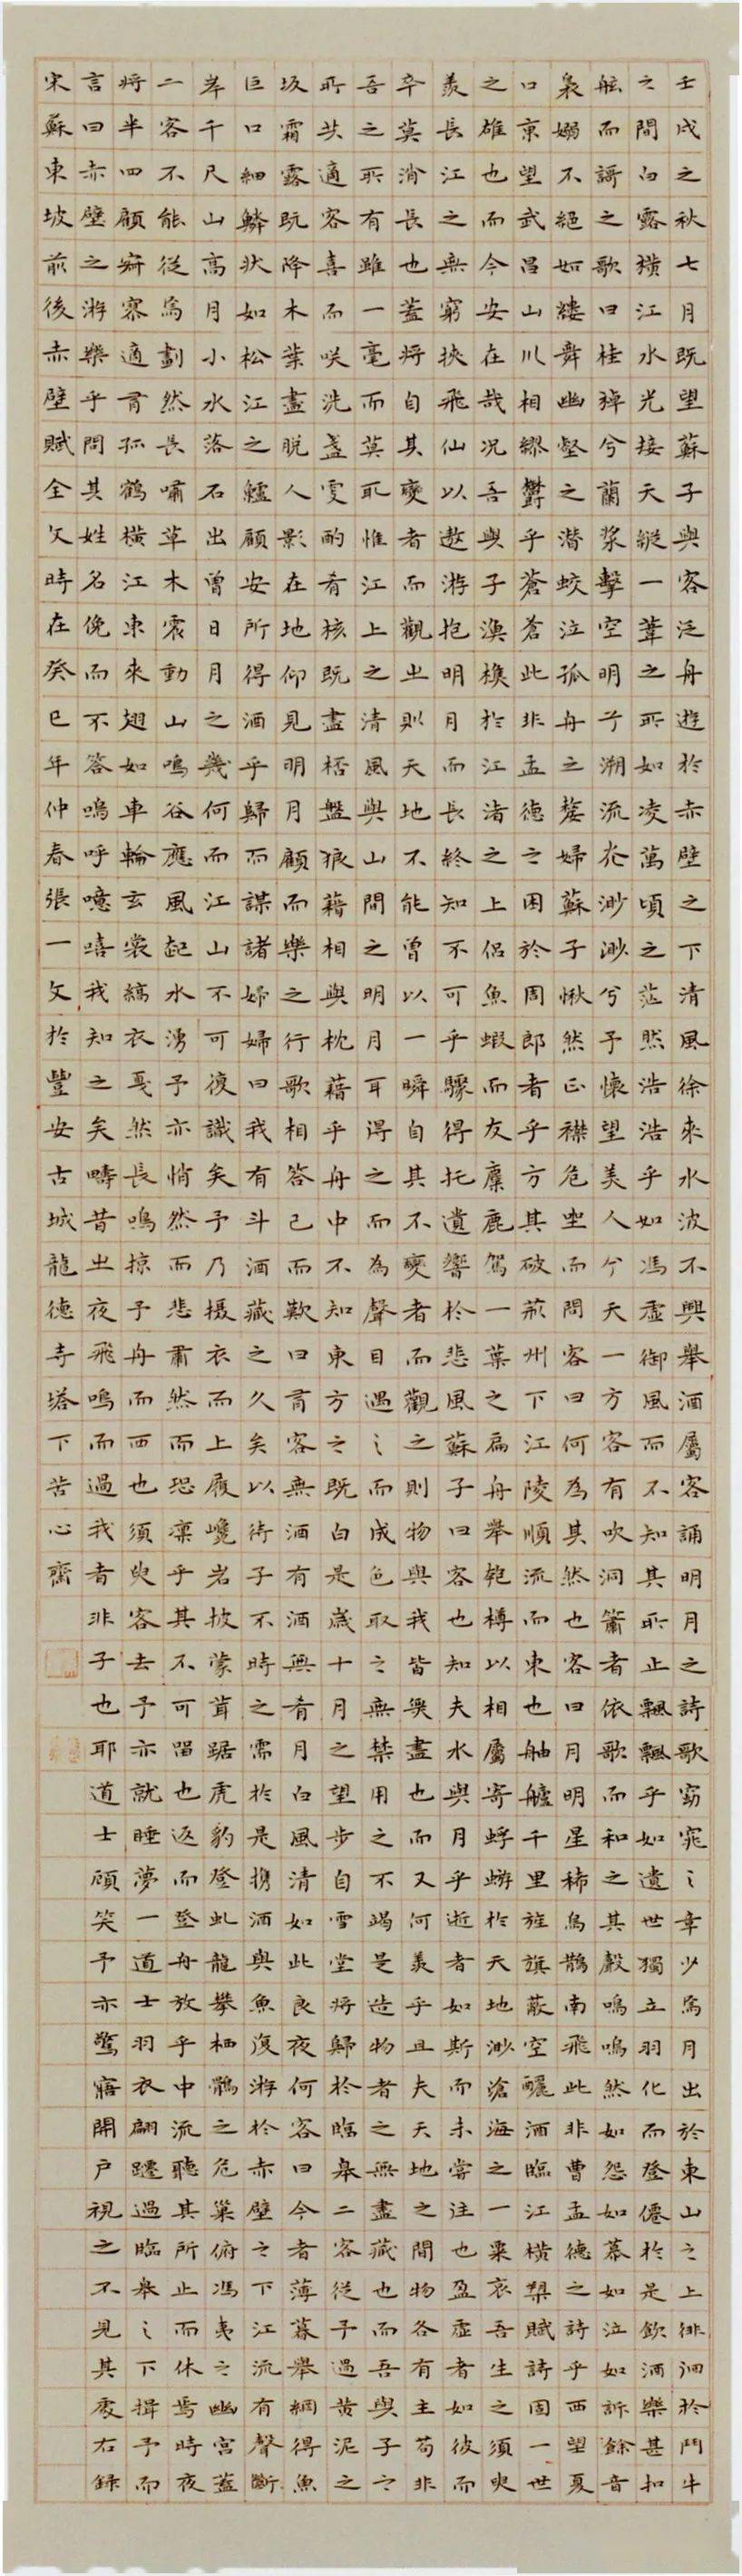 壬戌之秋七月既望蘇子與客泛舟遊於赤壁之下清風徐來水波不興舉酒屬客誦明月之詩歌窈窕之章少焉月出於東山之上徘徊於鬥牛
之間白露橫江水光接天縱一葦之所如凌萬頃之茫然浩浩乎如馮虛御風而不知其所止飄飄乎如遺世獨立羽化而登僊於是飲酒樂甚扣
舷而謌之歌曰桂棹兮蘭槳擊空明兮溯流光渺渺兮予懷望美人兮天一方客有吹洞簫者依歌而和之其聲鳴鳴然如怨如慕如泣如訴餘音
裊嫋不絕如縷舞幽壑之潛蛟泣孤舟之嫠婦蘇子愀然正襟危坐而問客曰何為其然也客曰月明星稀烏鵲南飛此非曹孟德之詩乎西望夏
口東望武昌山川相繆鬱乎蒼蒼此非孟德之困於周郎者乎方其破荊州下江陵順流而東也舳艫千里旌旗蔽空釃酒臨江橫槊賦詩固一世
之雄也而今安在哉況吾與子漁樵於江渚之上侶魚蝦而友麋鹿駕一葉之扁舟舉匏樽以相屬寄蜉蝣於天地渺滄海之一粟哀吾生之須臾
羨長江之無窮挾飛仙以遨游抱明月而長終知不可乎驟得托遺響於悲風蘇子曰客也知夫水與月乎逝者如斯而未嘗往也盈虛者如彼而
卒莫消長也蓋將自其變者而觀之則天地不能曾以一瞬自其不變者而觀之則物與我皆無盡也而又何羨乎且夫天地之間物各有主苟非
吾之所有雖一毫而莫取惟江上之清風與山間之明月耳得之而為聲目遇之而成色取之無禁用之不竭是造物者之無盡藏也而吾與子之
所共適客喜而咲洗盞更酌肴核既盡桮盤狼藉相與枕藉乎舟中不知東方之既白是歲十月之望步自雪堂將歸於臨皋二客從予過黃泥之
坂霜露既降木葉盡脫人影在地仰見明月顧而樂之行歌相答已而歎曰有客無酒有酒無肴月白風清如此良夜何客曰今者薄暮舉網得魚
巨口細鱗狀如松江之鱸顧安所得酒乎歸而謀諸婦婦曰我有斗酒藏之久矣以待子不時之需於是攜酒與魚復游於赤壁之下江流有聲斷
岸千尺山高月小水落石出曾日月之幾何而江山不可復識矣予乃攝衣而上履巉岩披蒙茸踞虎豹登虬龍攀栖鶻之危巢俯馮夷之幽宮蓋
二客不能從焉劃然長嘯草木震動山鳴谷應風起水湧予亦悄然而悲肅然而恐凜乎其不可留也返而登舟放乎中流聽其所止而休焉時夜
將半四顧寂寥適有孤鶴橫江東來翅如車輪玄裳縞衣戛然長鳴掠予舟而西也須臾客去予亦就睡夢一道士羽衣翩躚過臨皋之下揖予而
言曰赤壁之游樂乎問其姓名俛而不答嗚呼噫嘻我知之矣疇昔之夜飛鳴而過我者非子也耶道士顧笑予亦驚寤開戶視之不見其處右錄
宋蘇東坡前後赤壁賦全文時在癸巳年仲春張一文於豐安古城龍德寺塔下苦心齋